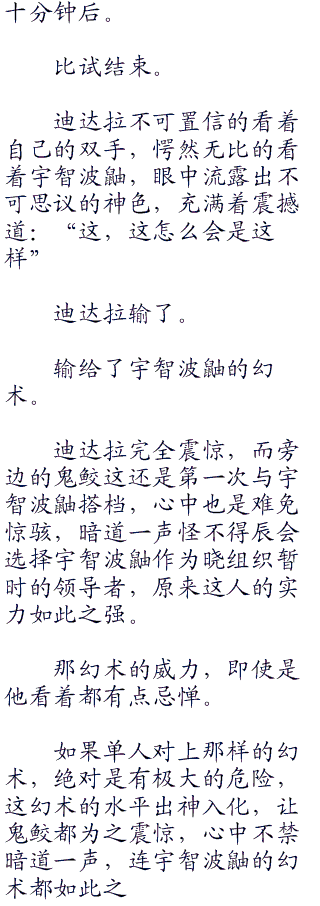 十分钟后。
比试结束。
迪达拉不可置信的看着
自己的双手，愕然无比的看
着宇智波鼬，眼中流露出不
可思议的神色，充满着震撼
道：“这，这怎么会是这
样”
迪达拉输了。
输给了宇智波鼬的幻
术。
迪达拉完全震惊，而旁
边的鬼鲛这还是第一次与宇
智波鼬搭档，心中也是难免
惊骇，暗道一声怪不得辰会
选择宇智波鼬作为晓组织暂
时的领导者，原来这人的实
力如此之强。
那幻术的威力，即使是
他看着都有点忌惮。
如果单人对上那样的幻
术，绝对是有极大的危险，
这幻术的水平出神入化，让
鬼鲛都为之震惊，心中不禁
暗道一声，连宇智波鼬的幻
术都如此之